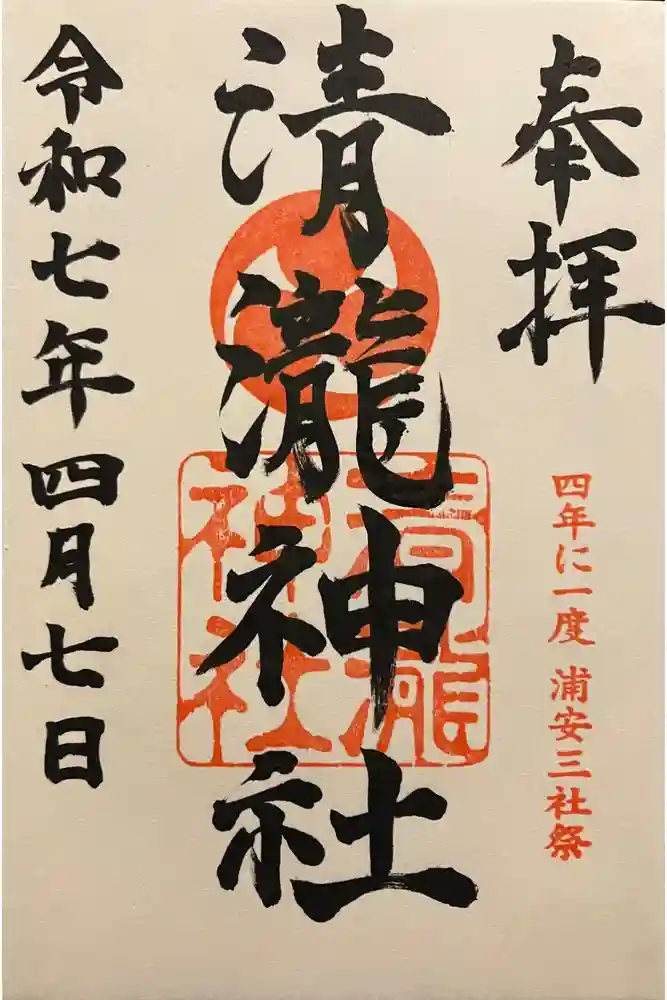 奉拝
四年に一度 浦安三社祭
清瀧神社
清瀧
神社
令和七年四月七日